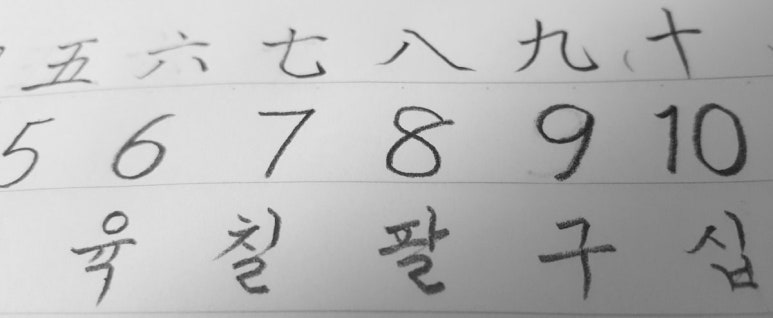 五 六 七 八 九 十
5 6 7 8 9 10
육 칠 팔 구 십